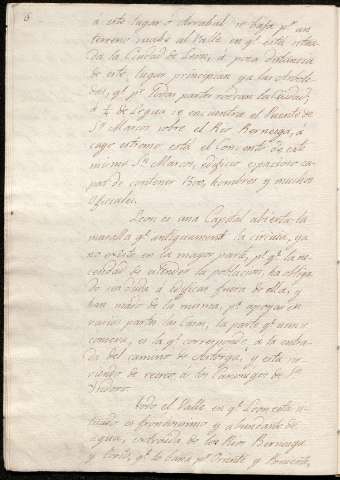 6
á este lugar ó Arrabal se baja pr. un
terreno suabe al Valle en qe. está situa-
da la Ciudad de Leon, á poca distancia
de este lugar principian ya las Arbole-
das, qe. pr. todas partes rodean la Ciudad;
á ¼ de Legua se encuentra el Puente de
Sn. Marcos sobre el Rio Bernesga, á
cuyo estremo está el Convento de este
mismo Sn. Marcos, edificio espacioso ca-
paz de contener 1500, hombres y muchos
oficiales.
Leon es una Capital abierta la
muralla qe. antiguamente la circuia, ya
no existe en la mayor parte, pr. qe. la ne-
cesidad de estender la poblacion, ha obliga-
do sin duda á edificar fuera de ella; y
han de la misma, pa. apoyar en
varias partes las casas, la parte qe. aun se
conserva, es la qe. corresponde, á la entra-
da del camino de Astorga, y está sir-
viendo de recreo á los Canonigos de Sn.
Ysidoro.
Todo el Valle en qe. Leon está si-
tuado es frondosisimo y abundante de
agua, extraida de los Rios Bernesga
y Torio, qe. lo baña pr. Oriente y Poniente,